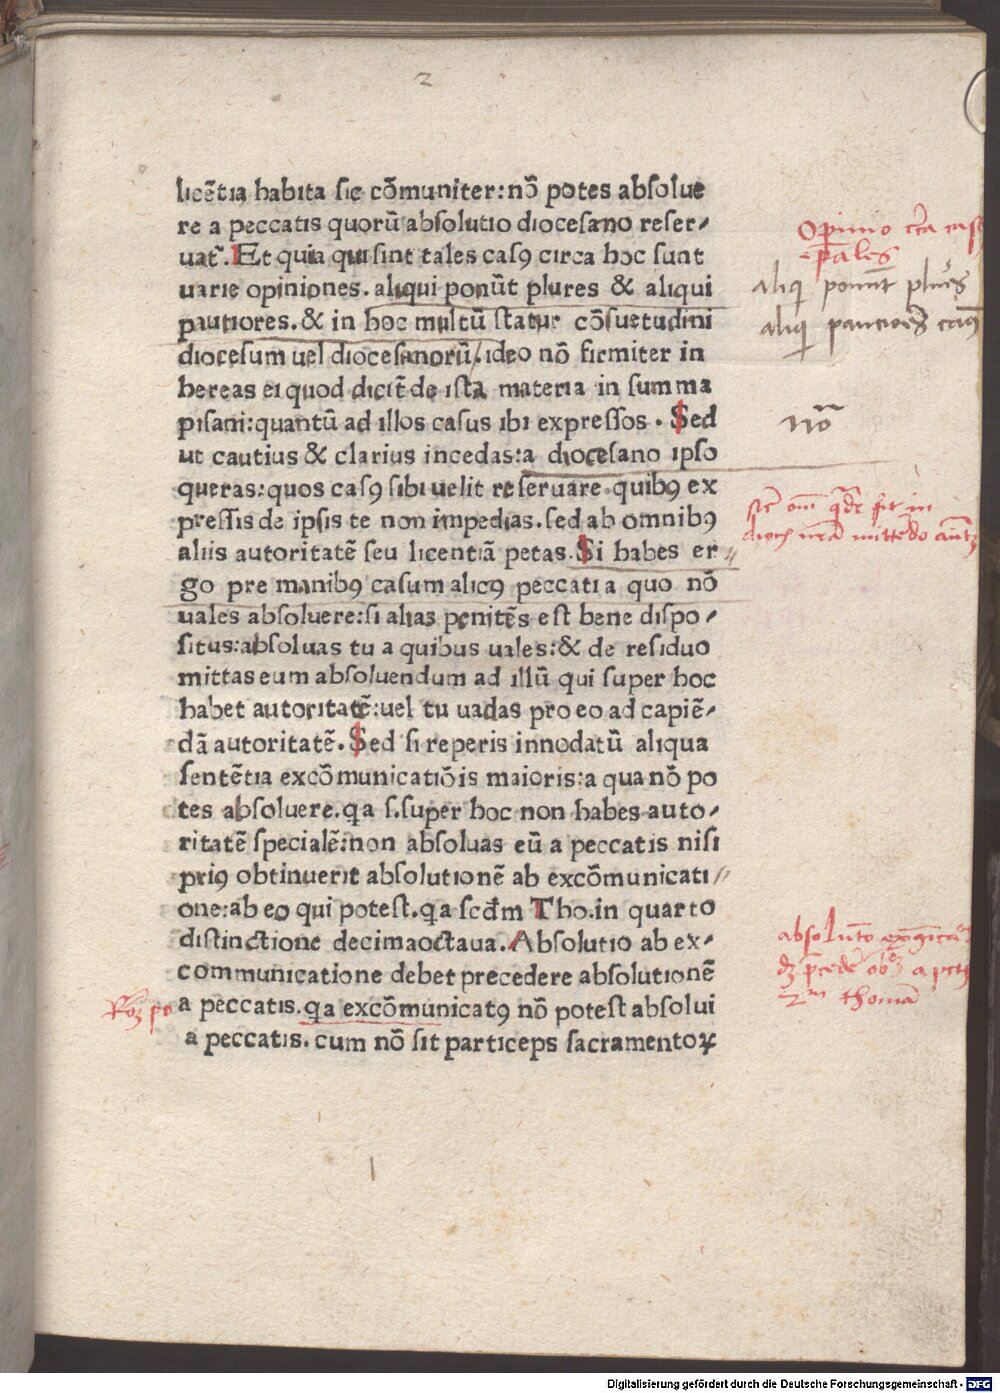 2
licẽtia habita sic cõmuniter:nõ potes absolue
re a peccatis quorũ absolutio diocesano reser⸗
uat̃. Et quia qui sint tales casꝰ circa hoc sunt
uarie opiniones. aliqui ponũt plures & aliqui
pautiores. & in hoc multũ statur cõsuetudini
diocesum uel diocesanorũ. ideo nõ firmiter in
hereas ei quod dicit̃ de ista materia in summa
pisani:quantũ ad illos casus ibi expressos . Sed
ut cautius & clarius incedas:a diocesano ipso
queras:quos casꝰ sibi uelit reseruare.quibꝰ ex
pressis de ipsis te non impedias.sed ab omnibꝰ
aliis autoritatẽ seu licentiã petas. Si habes er
go pre manibꝰ casum alicꝰ peccati a quo nõ
uales absoluere:si alias penitẽs est bene dispo⸗
situs:absoluas tu a quibus uales:& de residuo
mittas eum absoluendum ad illũ qui super hoc
habet autoritatẽ:uel tu uadas pro eo ad capiẽ⸗
dã autoritatẽ. Sed si reperis innodatũ aliqua
sentẽtia excõmunicatiõis maioris:a qua nõ po
tes absoluere.qa s.super hoc non habes auto⸗
ritatẽ specialẽ:non absoluas eũ a peccatis nisi
priꝰ obtinuerit absolutionẽ ab excõmunicati
one:ab eo qui potest.qa scđm Tho.in quarto
distinctione decimaoctaua. Absolutio ab ex⸗
communicatione debet precedere absolutionẽ
a peccatis. qa excõmunicatꝰ nõ potest absolui
a peccatis. cum nõ sit particeps sacramentoꝝ
aliqi ponunt plures
aliqi
nõ
sic
fit in
mittedo
absolutio
a
thomã
Digitalisierung gefördert durch die Deutsche Forschungsgemeinschaft - DFG